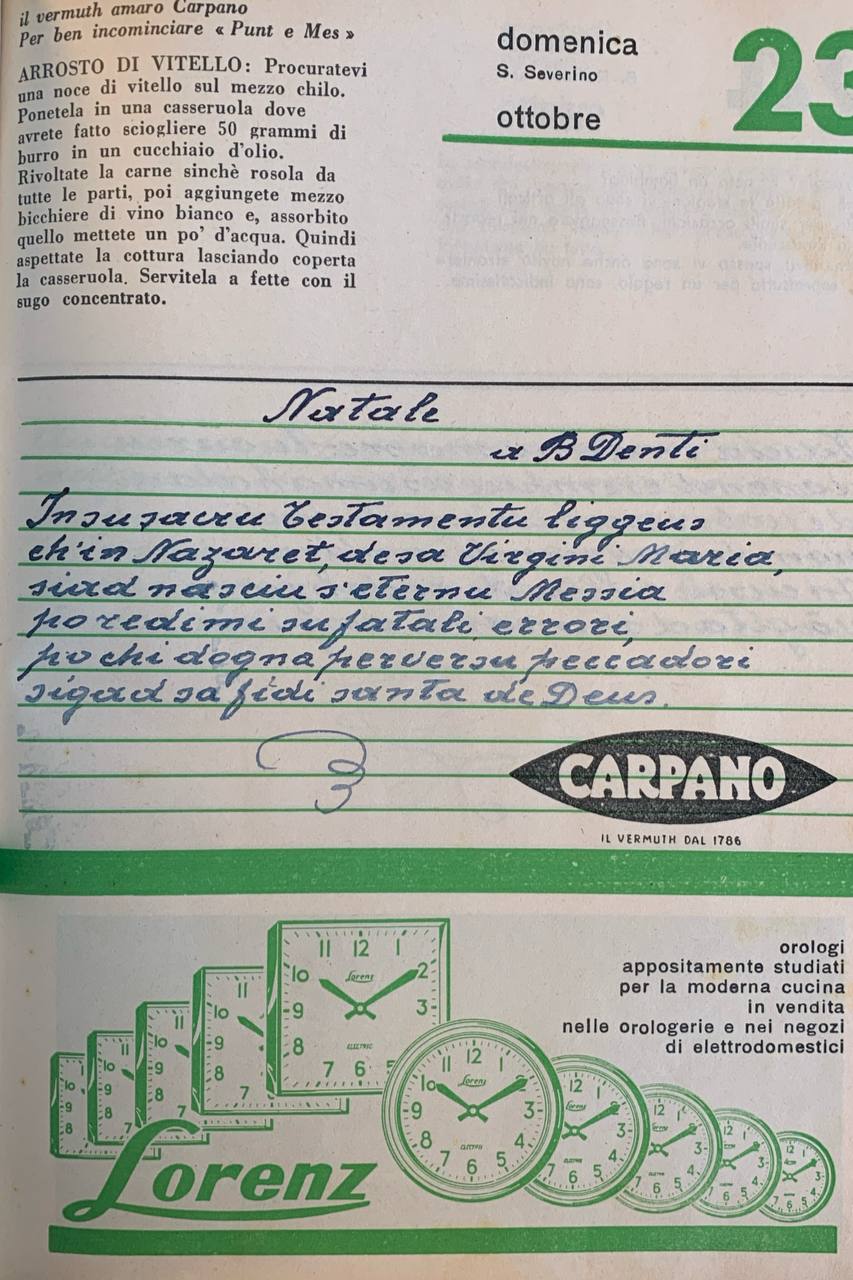 il vermuth amaro Carpano
Per ben incominciare « Punt e Mes »
ARROSTO DI VITELLO: Procuratevi
una noce di vitello sul mezzo chilo.
Ponetela in una casseruola dove
avrete fatto sciogliere 50 grammi di
burro in un cucchiaio d'olio.
Rivoltate la carne sinchè rosola da
tutte le parti, poi aggiungete mezzo
bicchiere di vino bianco e, assorbito
quello mettete un po' d'acqua. Quindi
aspettate la cottura lasciando coperta
la casseruola. Servitela a fette con il
sugo concentrato.
domenica
S. Severino
ottobre
23
Natale
a B Denti
In su sacru testamentu liggeus
ch'in Nazaret, de sa Virgini Maria,
siad nasciu s'eternu Messia
po redimi su fatali errori,
po chi dogna perversu peccadori
sigad sa fidi santa de Deus.
CARPANO
IL VERMUTH DAL 1786
orologi
appositamente studiati
per la moderna cucina
in vendita
nelle orologerie e nei negozi
di elettrodomestici
Lorenz